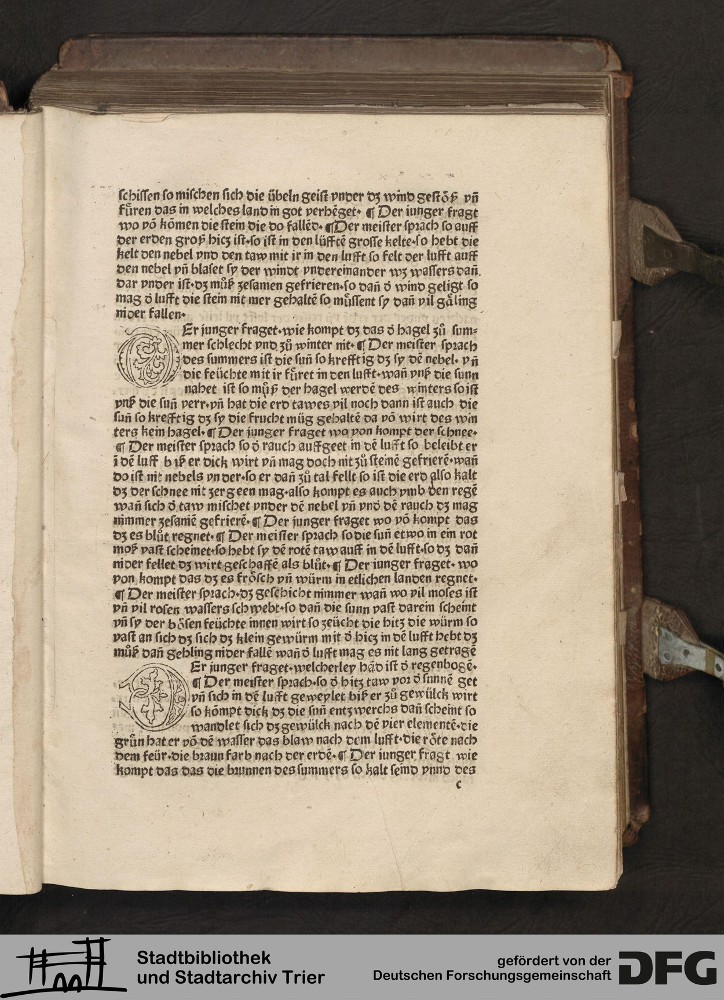 schissen so mischen sich die übeln geist vnder dz wind gestöß vñ
füren das in welches land in got verhēget· ¶ Der iunger fragt
wo vō kōmen die stein die do fallēd· ¶ Der meister sprach so auff
der erden groß hicz ist·so ist in den lüfftē grosse kelte·so hebt die
kelt den nebel vnd den taw mit ir in den lufft so felt der lufft auff
den nebel vñ blaset sy der windt vndereinander wz wassers dañ
dar vnder ist·dz můß zesamen gefrieren·so dañ ð wind geligt so
mag ð lufft die stein nit mer gehaltē so můssent sy dañ vil gåling
nider fallen·
Er junger fraget·wie kompt dz das ð hagel zů sum-
mer schlecht vnd zů winter nit· ¶ Der meister sprach
des summers ist die suñ so krefftig dz sy dē nebel· vñ
die feüchte mit ir fůret in den lufft·wañ vnß die sunn
nahet ist so můß der hagel werdē des winters so ist
vnß die suñ verr·vñ hat die erd tawes vil noch dann ist auch die
suñ so krefftig dz sy die frucht müg gehaltē da vō wirt des win
ters kein hagel· ¶ Der junger fraget wo von kompt der schnee·
¶ Der meister sprach so ð rauch auffgeet in dē lufft so beleibt er
ī dē luff biß er dick wirt vñ mag doch nit zů steinē gefrierē·wañ
do ist nit nebels vnder·so er dañ zů tal fellt so ist die erd also kalt
dz der schnee nit zergeen mag·also kompt es auch vmb den regē
wañ sich ð taw mischet vnder dē nebel vñ vnð dē rauch dz mag
nimmer zesamē gefrierē· ¶ Der junger fraget wo vō kompt das
dz es blůt regnet· ¶ Der meister sprach so die suñ etwo in ein rot
moß vast scheinet·so hebt sy dē rotē taw auff in dē lufft·so dz dañ
nider fellet dz wirt geschaffē als blůt· ¶ Der junger fraget· wo
von kompt das dz es frösch vñ würm in etlichen landen regnet·
¶ Der meister sprach·dz geschicht nimmer wañ wo vil moses ist
vñ vil rosen wassers schwebt·so dañ die sunn vast darein scheint
vñ sy der bösen feüchte innen wirt so zeücht die hitz die würm so
vast an sich dz sich dz klein gewürm mit ð hicz in dē lufft hebt dz
můß dañ gehling nider fallē wañ ð lufft mag es nit lang getragē
Er junger fraget·welcherley hād ist ð regenbogē·
¶ Der meister sprach·so ð hitz taw vor ð sunnē get
vñ sich in dē lufft geweylet biß er zů gewülck wirt
so kōmpt dick dz die suñ entzwerchs dañ scheint so
wandlet sich dz gewülck nach dē vier elementē·die
grün hat er vō dē wasser das blaw nach dem lufft·die rōte nach
dem feür·die braun farb nach der erdē· ¶ Der iunger fragt wie
kompt das das die brunnen des summers so kalt seind vnnd des
c
Stadtbibliothek
und Stadtarchiv Trier
gefördert von der
Deutschen Forschungsgemeinschaft
DFG